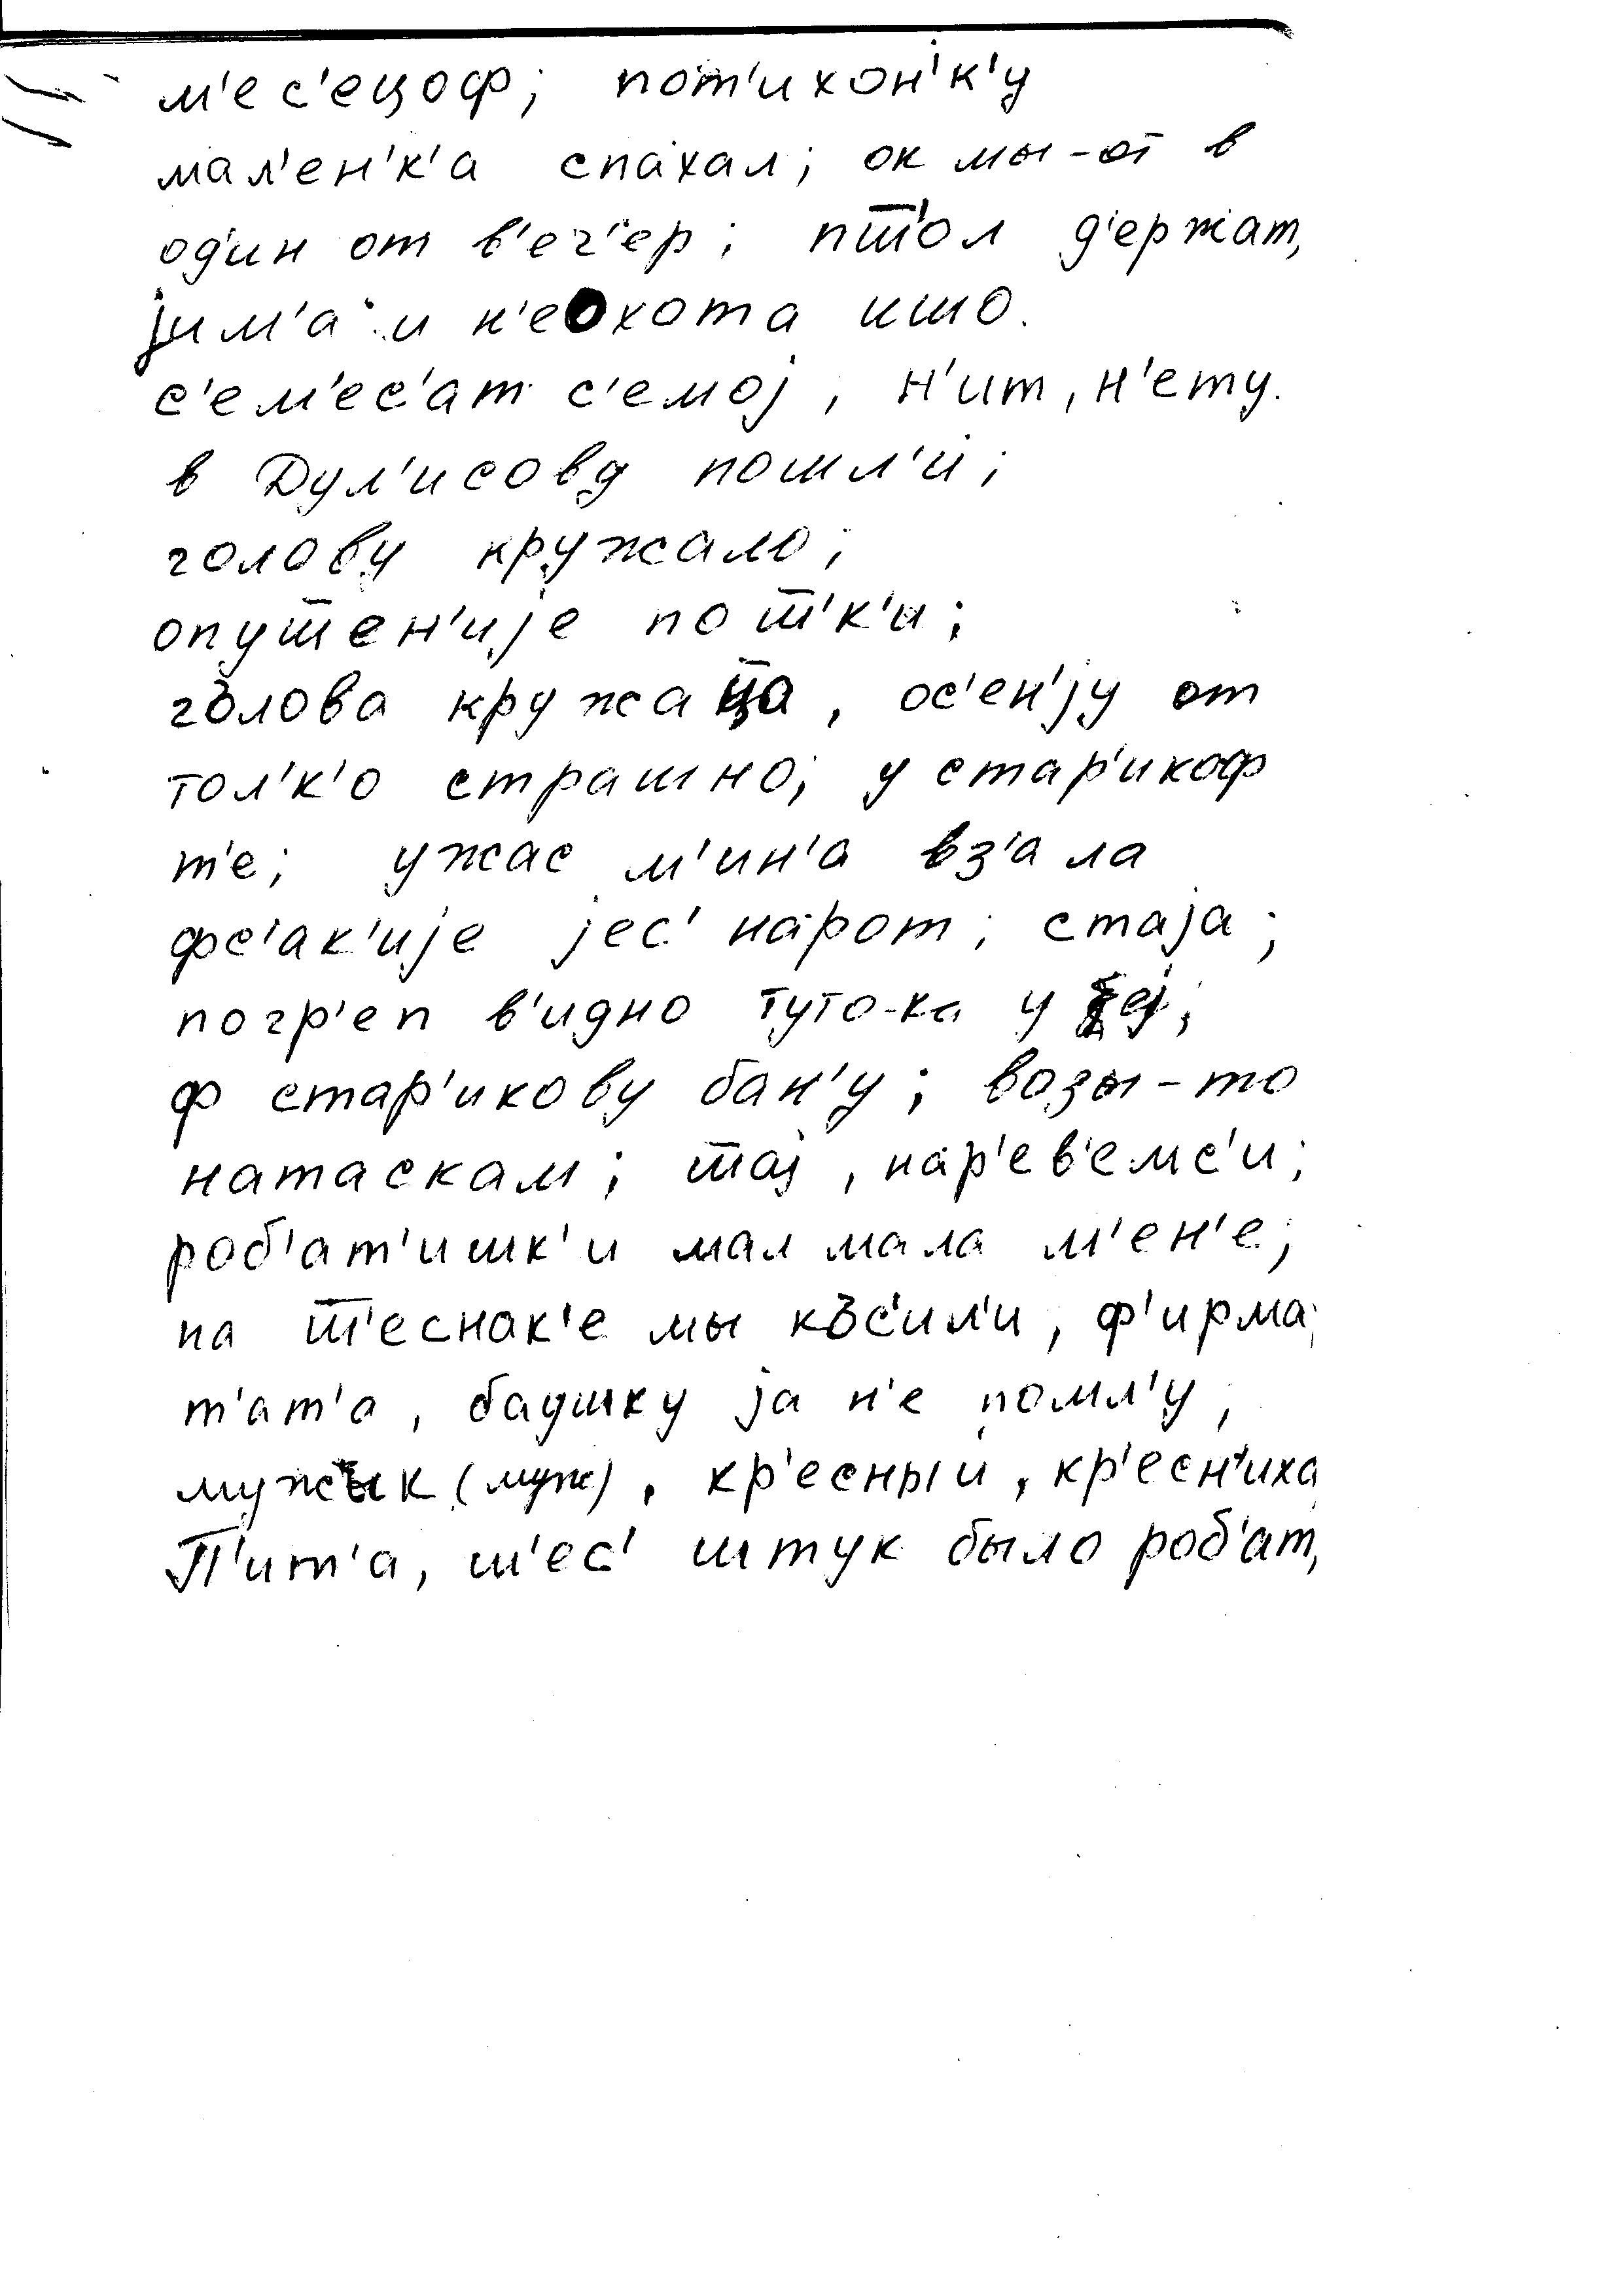 м'ес'ецоф; пот'ихон'к'у
мал'ен'к'а спахал; ок мы-от в
од'ин от в'еч'ер; пш̅'ол д'ержат,
јим'а и н'еохота ишо.
с'ем'ес'ат с'емој, н'ит, н'ету.
в Дул'исово пошл'и;
голову кружало;
опуш̅ен'ије по ш̅'к'и;
голова кружаца, ос'ен'ју от
тол'к'о страшно; у стар'икоф
т'е; ужас м'ин'а вз'ала
фс'ак'ије јес' народ; стаја;
погр'еп в'идно туто-ка у
ф стар'икову бан'у; возы-то
натаскам; ш̅ај, нар'ев'емс'и;
роб'ат'ишк'и мал мала м'ен'е;
на ш̅'еснак'е мы кос'ил'и, ф'ирма;
т'ат'а, баушку ја н'е помл'у,
мужык (муж), кр'есный, кр'есн'иха
П'ит'а, ш'ес' штук было роб'ат,